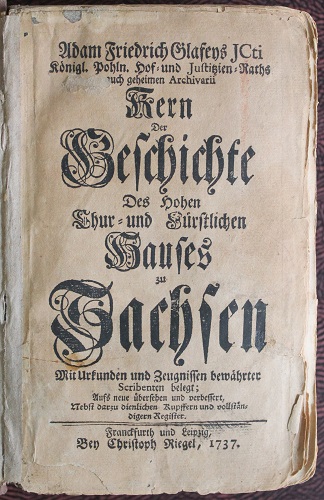 Adam Friedrich Glafeys JCti
Königl. Pohln. Hof- und Justitzien-Raths
auch geheimen Archivarii
Kern
Der
Geschichte
Des Hohen
Chur- und Fürstlichen
Hauses
zu
Sachsen
Mit Urkunden und Zeugnissen bewährter
Scribenten belegt;
Aufs neue übersehen und verbessert,
Nebst darzu dienlichen Kupffern und vollstän-
digern Register.
Franckfurth und Leipzig,
Bey Christoph Riegel, 1737.